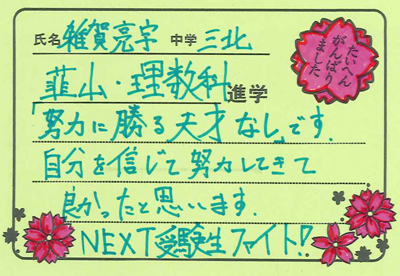 氏名 雑賀亮宇 中学 三北
たいへん
がんばり
ました
韮山・理数科 進学
「努力に勝る天才なし」です.
自分を信じて努力してきて
良かったと思います.
NEXT受験生ファイト!!